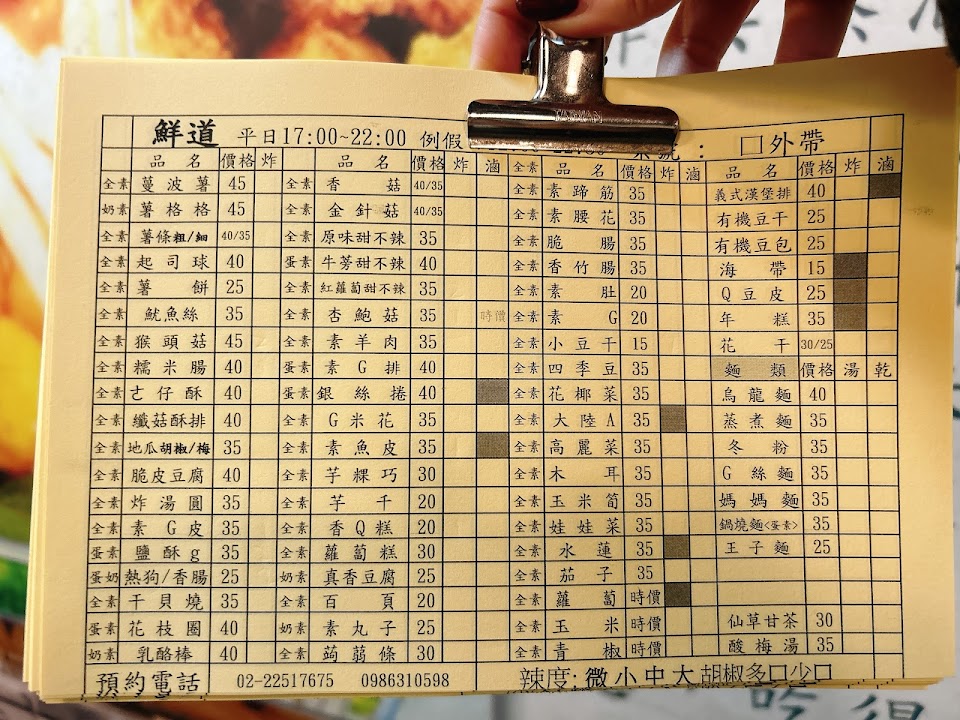 鮮道 平日17:00~22:00 例假 : 口外帶
品名 價格 炸 品名 價格 炸 滷 全素 品名 價格 炸 滷 品名 價格 炸 滷
全素 蔓波薯 45 全素 香菇 40/35 全素 素蹄筋 35 義式漢堡排 40
奶素 薯格格 45 全素 金針菇 40/35 全素 素腰花 35 有機豆干 25
全素 薯條粗/細 40/35 全素 原味甜不辣 35 全素 脆腸 35 有機豆包 25
全素 起司球 40 蛋素 牛蒡甜不辣 40 全素 香竹腸 35 海帶 15
全素 薯餅 25 全素 紅蘿蔔甜不辣 35 全素 素肚 20 Q豆皮 25
全素 魷魚絲 35 全素 杏鮑菇 35 時價 全素 素G 20 年糕 35
全素 猴頭菇 45 全素 素羊肉 35 全素 小豆干 15 花干 30/25
全素 糯米腸 40 蛋素 素G排 40 全素 四季豆 35 麵類 價格 湯 乾
全素 古仔酥 40 蛋素 銀絲捲 40 全素 花椰菜 35 烏龍麵 40
全素 纖菇酥排 40 全素 G米花 35 全素 大陸A 35 蒸煮麵 35
全素 地瓜胡椒/梅 35 全素 素魚皮 35 全素 高麗菜 35 冬粉 35
全素 脆皮豆腐 40 全素 芋粿巧 30 全素 木耳 35 G絲麵 35
全素 炸湯圓 35 全素 芋千 20 全素 玉米筍 35 媽媽麵 35
全素 素G皮 35 全素 香Q糕 20 全素 娃娃菜 35 鍋燒麵<蛋素> 35
蛋素 鹽酥g 35 全素 蘿蔔糕 30 全素 水蓮 35 王子麵 25
蛋奶 熱狗/香腸 25 奶素 真香豆腐 25 全素 茄子 35
全素 干貝燒 35 全素 百頁 20 全素 蘿蔔 時價
蛋素 花枝圈 40 奶素 素丸子 25 全素 玉米 時價 仙草甘茶 30
奶素 乳酪棒 40 全素 蒟蒻條 30 全素 青椒 時價 酸梅湯 35
預約電話 02-22517675 0986310598 辣度: 微小中大 胡椒多口少口
TAIWAN